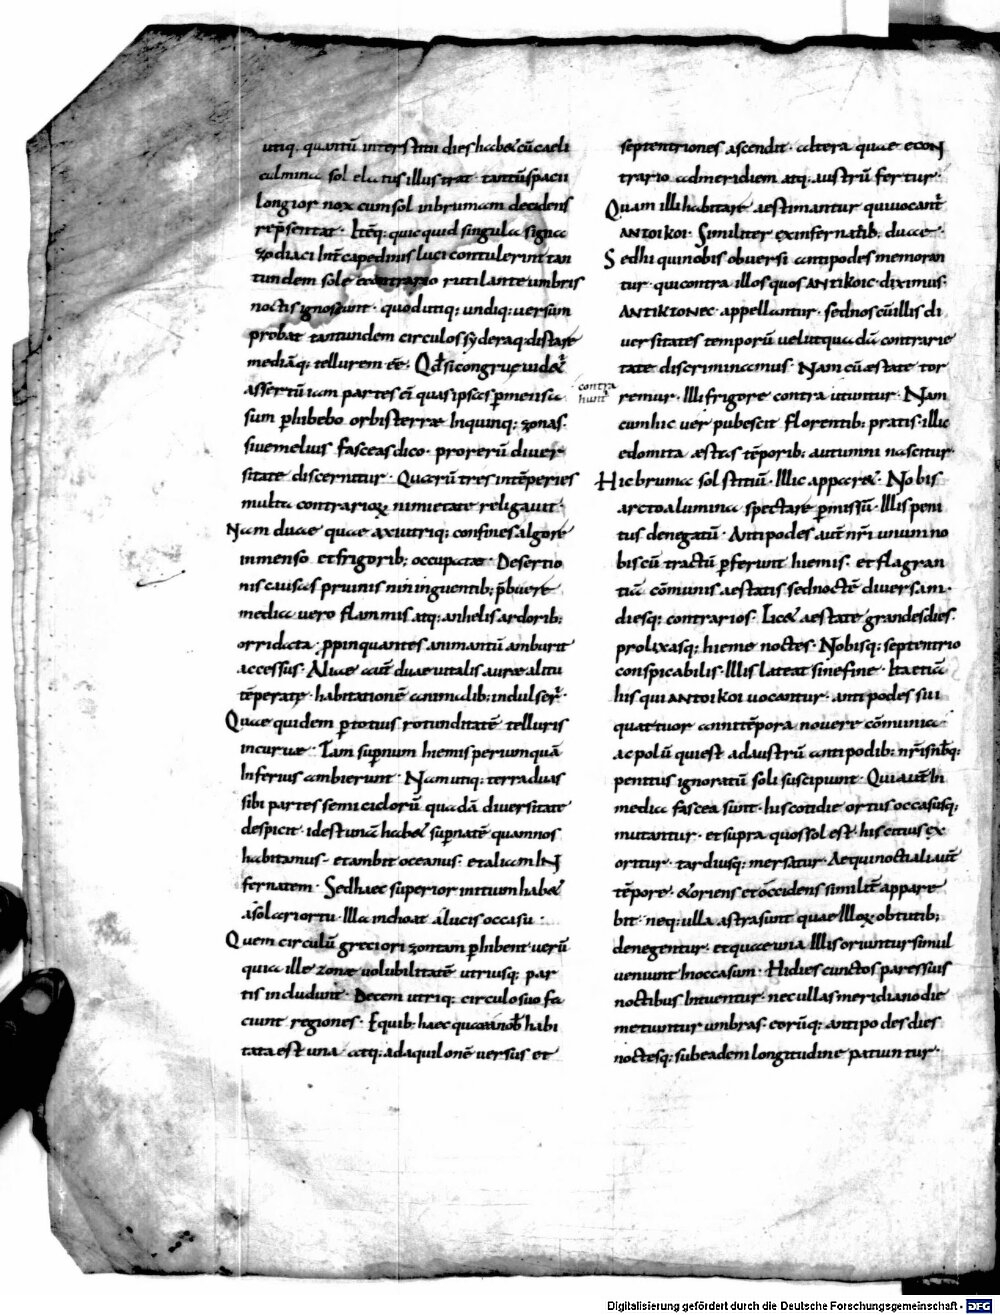 utiq. quantū interstitii dies habe& cū caeli
culmina sol elatus illustrat· tantū spacii
longior nox cum sol in brumam decidens
rep̄sentat· Itēq; quicquid singula signa
zodiaci int̄capedinis luci contulerint tan
tundem sole contrario rutilante umbris
noctis ignoscunt· quod utiq; undiq; uersum
probat tantundem circulos sydera q; distare
mediāq; tellurem ēē· Qd̄ si congrue uidet̄
assertū iam partes ei quas ipsas p̄mensa
sum phibebo orbis terrae In quinq; zonas·
siue melius fasceas dico· pro rerū diuer
sitate discernitur· Quarū tres intēperies
multa contrarioꝝ nimietate religauit·
Nam duae quae axi utriq; confines algore
inmenso et frigorib; occupatae· Desertio
nis causas pruinis niniguentib; p̄buere·
media uero flammis atq; anhelis ardorib;
orridata· ppinquantes animantū amburit
accessus· Aliae aut̄ duae uitalis aurae alitu
tēperatę· habitationē animalib; indulser̄·
Quae quidem p totius rotunditatē telluris
incuruae· Tam sup̄num hiemisperium quā
Inferius ambierunt· Nam utiq; terra duas
sibi partes semiciclorū quadā diuersitate
despicit· id est unā habe& sup̄natē quam nos
habitamus· et ambit oceanus· et aliam IN
fernatem· Sed haec superior initium habe&
a solari ortu· Illa inchoat a lucis occasu·
Quem circulū greci orizontam phibent uerū
quia ille zonae uolubilitatē utriusq; par
tis includunt· Decem utriq; circulo suo fa
ciunt regiones· E quib; haec quae a nob̄ habi
tata est una· atq; ad aquilonē uersus et
contra
hunt
septentriones ascendit· altera quae e coN
trario ad meridiem atq; austrū fertur·
Quam illi habitare aestimantur qui uocant̄
ANTOIKOI· Similiter ex infernatib; duae·
Sed hi qui nobis obuersi antipodes memoran
tur· qui contra illos quos ANTIKOIC diximus·
ANTIKTONEC· appellantur· sed nos cū illis di
uersitates temporū uelut quadā contrarie
tate discriminamus· Nam cū aestate tor
remur· Illi frigore contra utuntur· Nam
cum hic uer pubescit florentib; pratis· illic
edomita aestas tēporib; autumni nascitur·
Hic bruma solstitiū· Illic appare&· Nobis
arctoa lumina spectare p̄missū· Illis peni
tus denegatū· Antipodes aut̄ nr̄i unum no
biscū tractū pferunt hiemis· et flagran
tia cōmunis aestatis sed noctē diuersam·
diesq; contrarios· Lic& aestate grandes dies·
prolixasq; hieme noctes· Nobisq; septentrio
conspicabilis· Illis lateat sine fine· Ita etiā
his qui ANTOIKOI uocantur· antipodes sui
quattuor anni tēpora nouere cōmunia·
ac polū qui est ad austrū antipodib; nr̄is nb̄q;
penitus ignoratū soli suscipiunt· Qui aut̄ In
media fascea sunt· his cotidie ortus occasusq;
mutantur· et supra quos sol est· his citius ex
oritur· tardiusq; mersatur· Aequinoctiali aut̄
tēpore· & oriens et occidens similit̄ appare
bit· neq; ulla astra sunt quae Illoꝝ obtutib;
denegentur· et quae una Illis oriuntur simul
ueniunt In occasum· Hi dies cunctos pares suis
noctibus Intuentur· nec ullas meridiano die
metiuntur umbras· eorūq; antipodes dies
noctesq; sub eadem longitudine patiuntur·
Digitalisierung gefördert durch die Deutsche Forschungsgemeinschaft - DFG